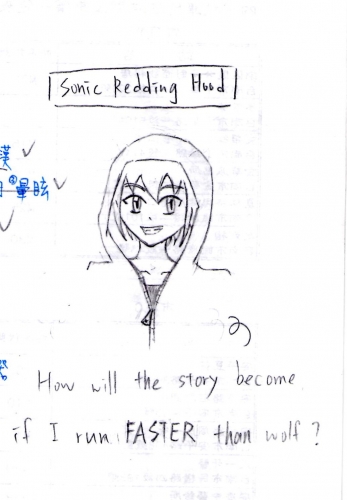 Sonic Redding Hood
漢 ✓
②暈眩 ✓
✓
How will the story become
if I run FASTER than wolf ?